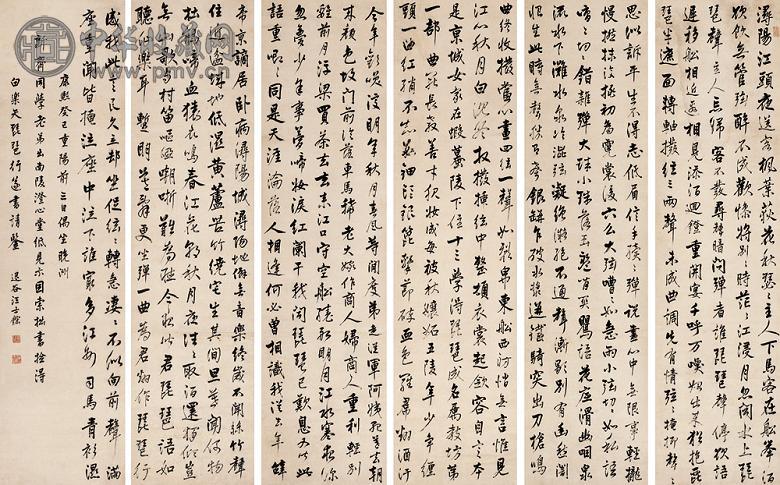 潯陽江頭夜送客楓葉荻花秋瑟瑟主人下馬客在船舉酒
欲飲無管絃醉不成歡慘將別別時茫茫江浸月忽聞水上琵
琶聲主人忘歸客不發尋聲暗問彈者誰琵琶聲停欲語
遲移船相近邀相見添酒迴燈重開宴千呼万喚始出來猶抱琵
琶半遮面轉軸撥絃三兩聲未成曲調先有情絃絃掩抑聲聲
思似訴平生不得志低眉信手續續彈說盡心中無限事輕攏
慢撚抹復挑初為霓裳後六么大絃嘈嘈如急雨小絃切切如私語
嘈嘈切切錯雜彈大珠小珠落玉盤間關鶯語花底滑幽咽泉
流水下灘水泉冷澀絃凝絕凝絕不通聲漸歇別有幽愁闇
恨生此時無聲勝有聲銀缾乍破水漿迸鐵騎突出刀槍鳴
曲終收撥當心畫四絃一聲如裂帛東船西舫悄無言惟見
江心秋月白沈吟收撥插絃中整頓衣裳起斂容自言本
是京城女家在蝦蟇陵下住十三學得琵琶成名屬教坊第
一部曲罷長教善才伏妝成每被秋孃妬五陵年少爭纏
頭一曲紅綃不知數鈿頭銀篦擊節碎血色羅裙翻酒汙
今年歡笑復明年秋月春風等閒度弟走從軍阿姨死暮去朝
來顏色故門前冷落車馬稀老大嫁作商人婦商人重利輕別
離前月浮梁買茶去去來江口守空船繞船明月江水寒夜深
忽夢少年事夢啼妝淚紅闌干我聞琵琶已歎息又聞此
語重唧唧同是天涯淪落人相逢何必曾相識我從去年辭
帝京謫居臥病潯陽城潯陽地僻無音樂終歲不聞絲竹聲
住近湓城地低濕黃蘆苦竹繞宅生其間旦暮聞何物
杜鵑啼血猿哀鳴春江花朝秋月夜往往取酒還獨傾豈
無山歌村笛嘔啞嘲哳難為聽今夜聞君琵琶語如
聽仙樂耳暫明莫辭更坐彈一曲為君翻作琵琶行
感我此言良久立却坐促絃絃轉急淒淒不似向前聲滿
座重聞皆掩泣座中泣下誰最多江州司馬青衫濕
康熙癸巳重陽前三日偶坐晚
學老弟出西陵澄心堂低見示因索拙書
白樂天琵琶行遂書請鑒 退谷汪士鋐